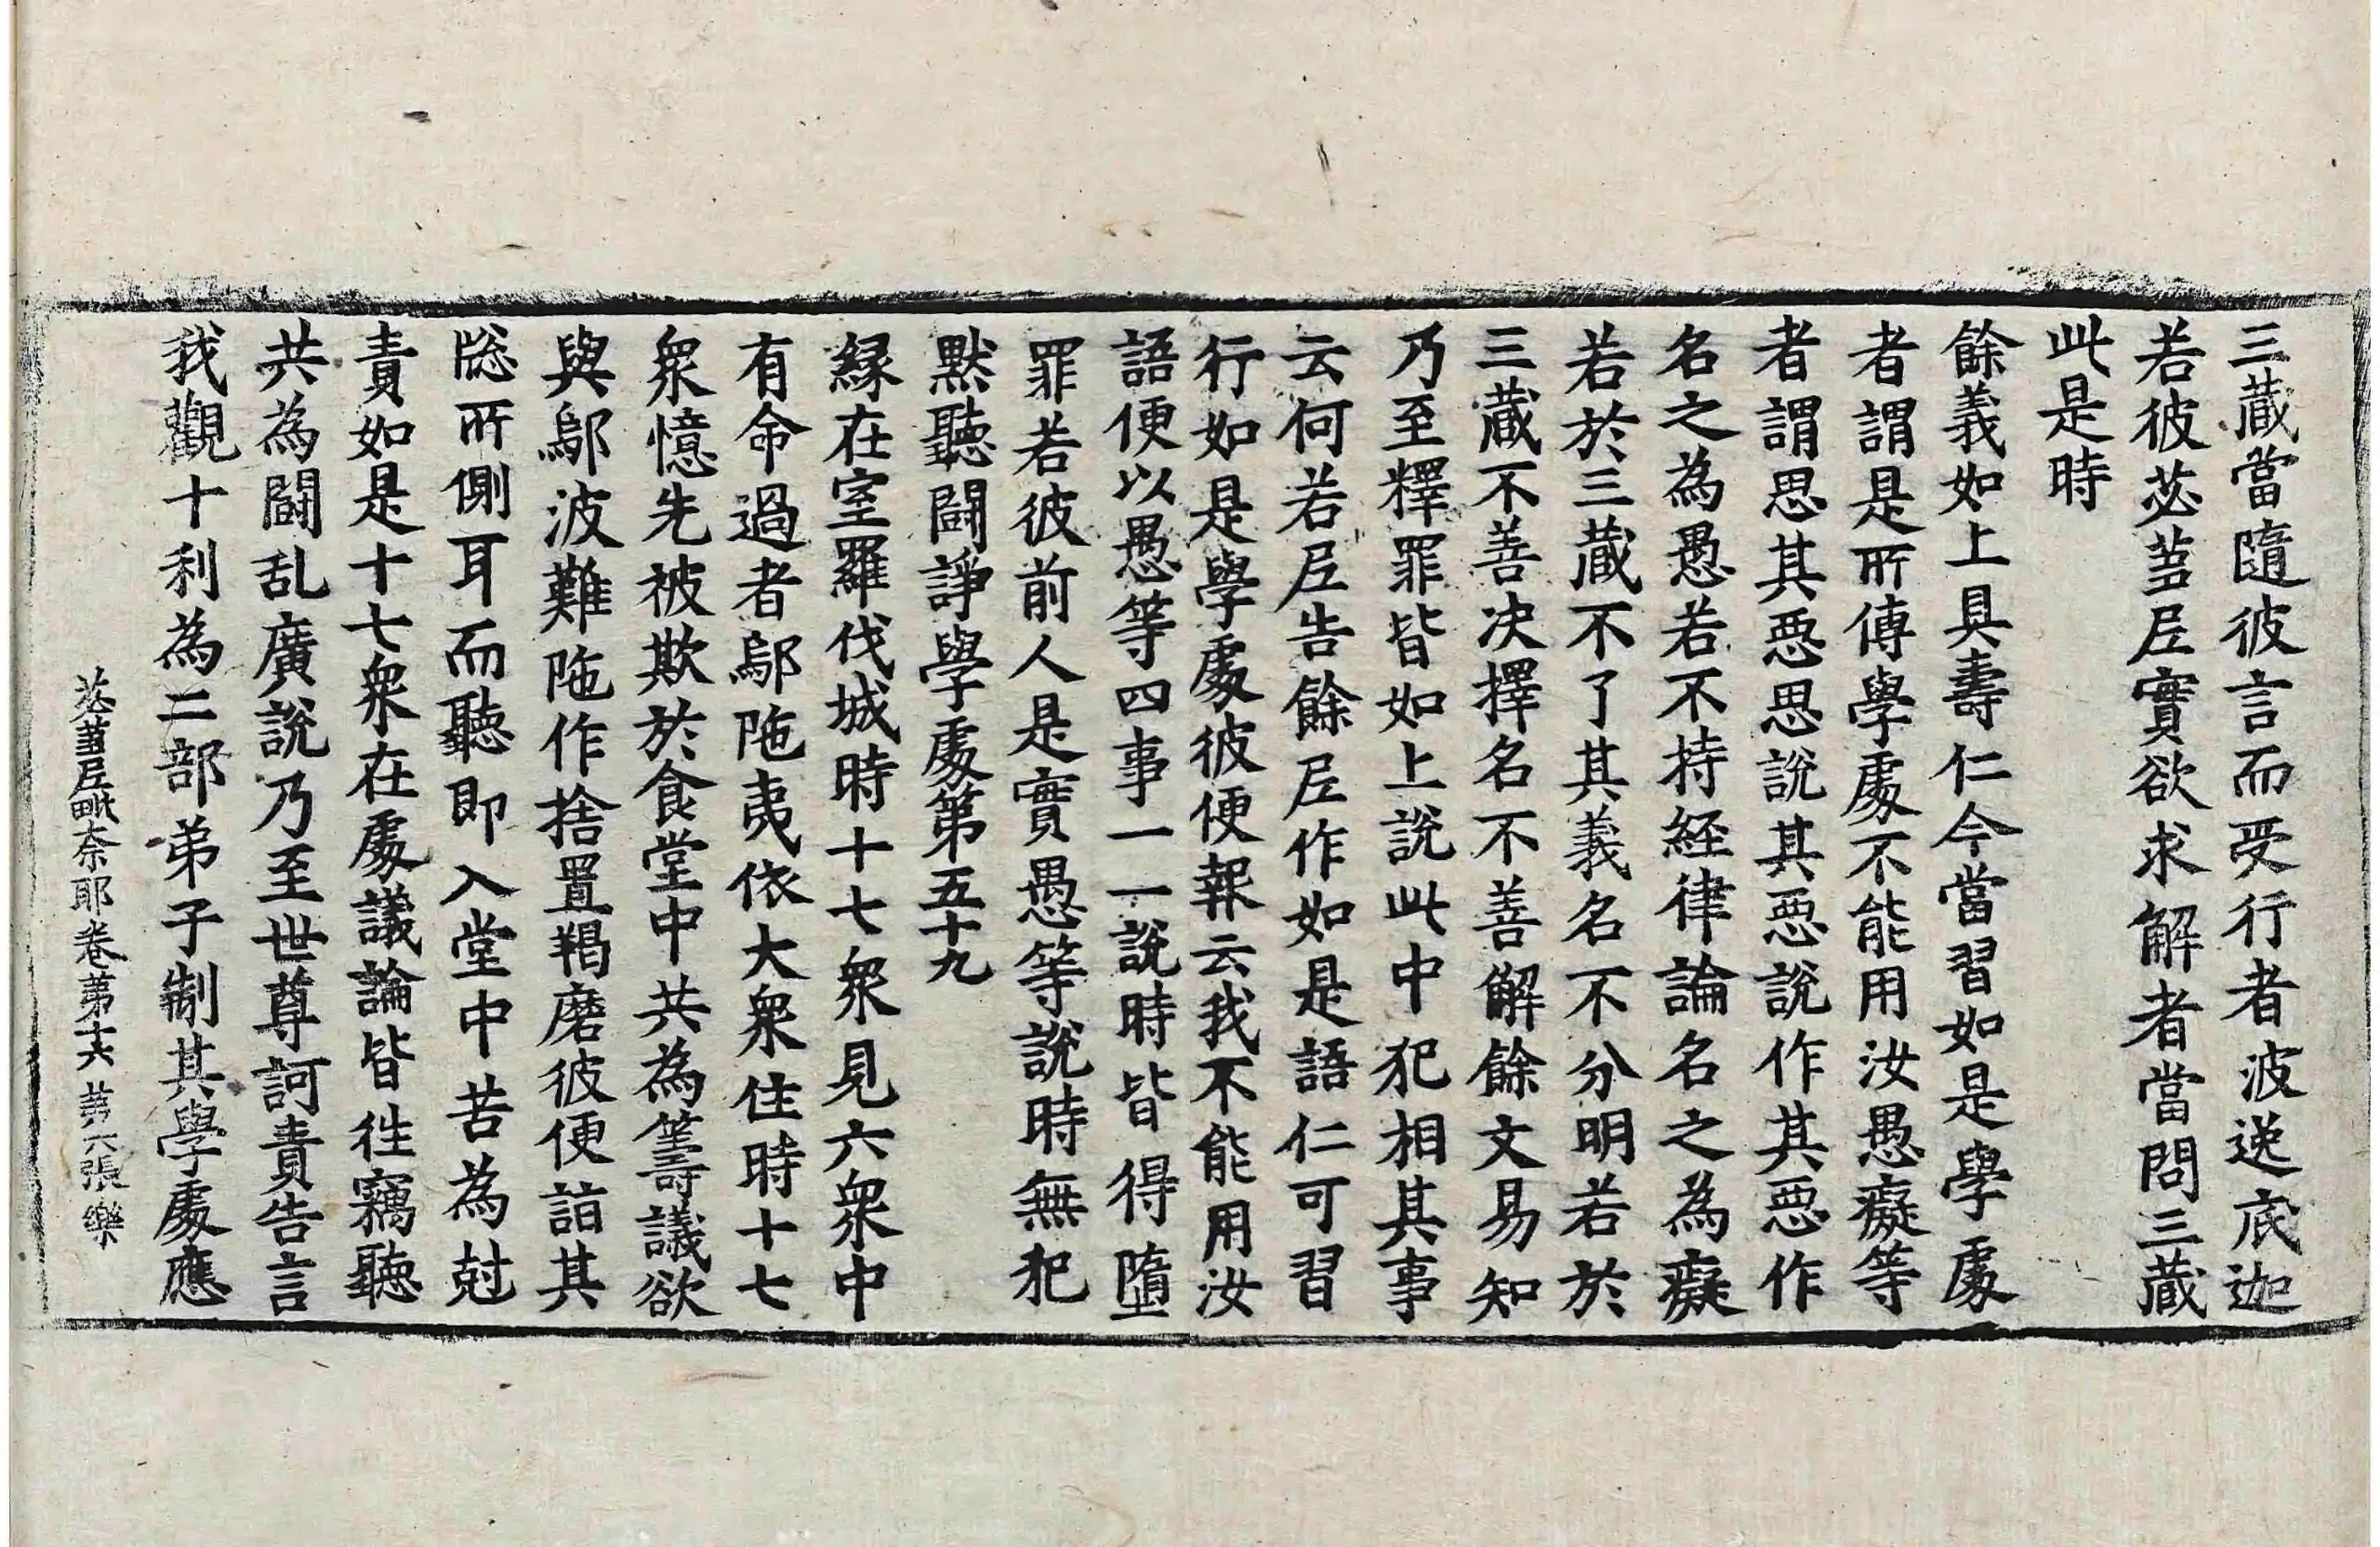 三蔵當隨彼言而受行者波逆底迦
若彼苾芻𡰱實欲求解者當問三蔵
此是時
餘義如上具壽仁今當習如是學處
者謂是所傳學處不能用汝愚癡等
者謂思其惡思說其惡說作其惡作
名之為愚若不持経律論名之為癡
若於三蔵不了其義名不分明若於
三蔵不善决擇名不善解餘文易知
乃至釋罪皆如上說此中犯相其事
云何若𡰱告餘𡰱作如是語仁可習
行如是學處彼便報云我不能用汝
語便以愚等四事一一說時皆得墮
罪若彼前人是實愚等說時無犯
默聽鬪諍學處第五十九
緣在室羅伐城時十七衆見六衆中
有命過者鄔陁夷依大衆住時十七
衆憶先被欺於食堂中共為籌議欲
與鄔波難陁作捨置羯磨彼便詣其
牕所側耳而聽即入堂中苦為尅
責如是十七衆在處議論皆徃竊聽
共為鬪乱廣說乃至世尊訶責告言
我觀十利為二部弟子制其學處應
苾芻𡰱毗奈耶卷第十六 第六張 樂